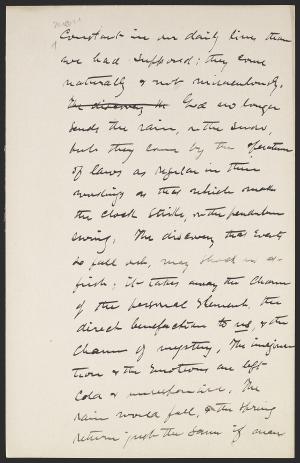 constant in our daily lives than
we had supposed; they come
naturally & not miraculously.
The discovery th God no longer
sends the rain, or the snow,
but they come by the operation
of laws as regular in their
workings as that which makes
the clock strike, or the pendulum
swing. The discovery that events
so fall out, may shock us at
first; it takes away the charm
of the personal element, the
direct benefaction to us, & the
charm of mystery. The imagina-
tion & the emotions are left
cold & unresponsive. The
rain would fall, & the spring
return just the same if man